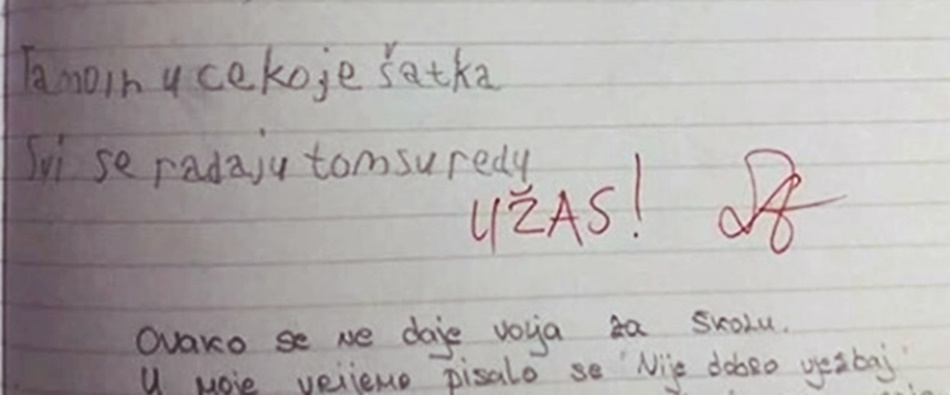 Tamoin u cekoje šatka
Svi se radaju tomsuredu
UŽAS!
Ovako se ne daje volja za skolu.
U moje vrijeme pisalo se "Nije dobro vježbaj"